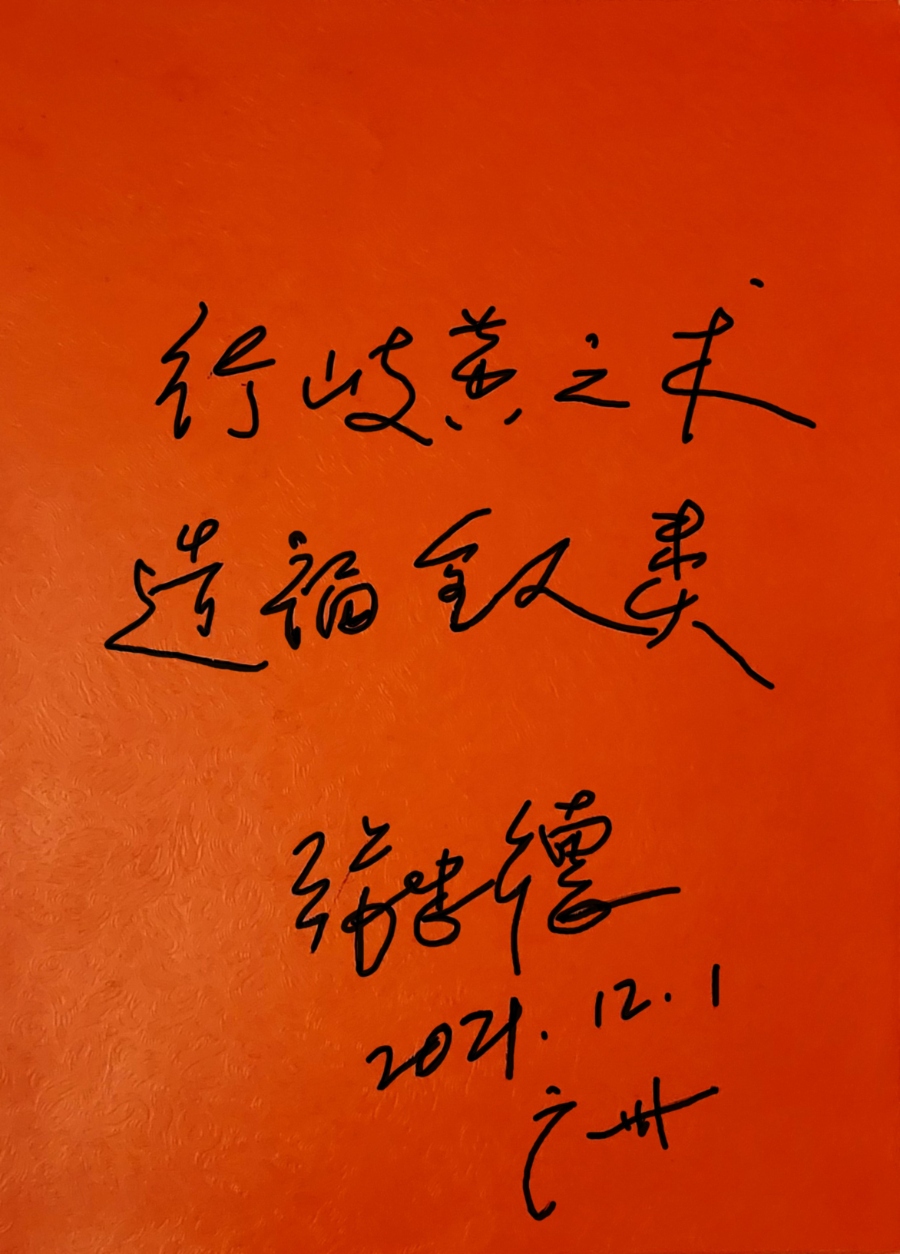 行岐黄之术
造福全人类
德
2021.12.1
广州